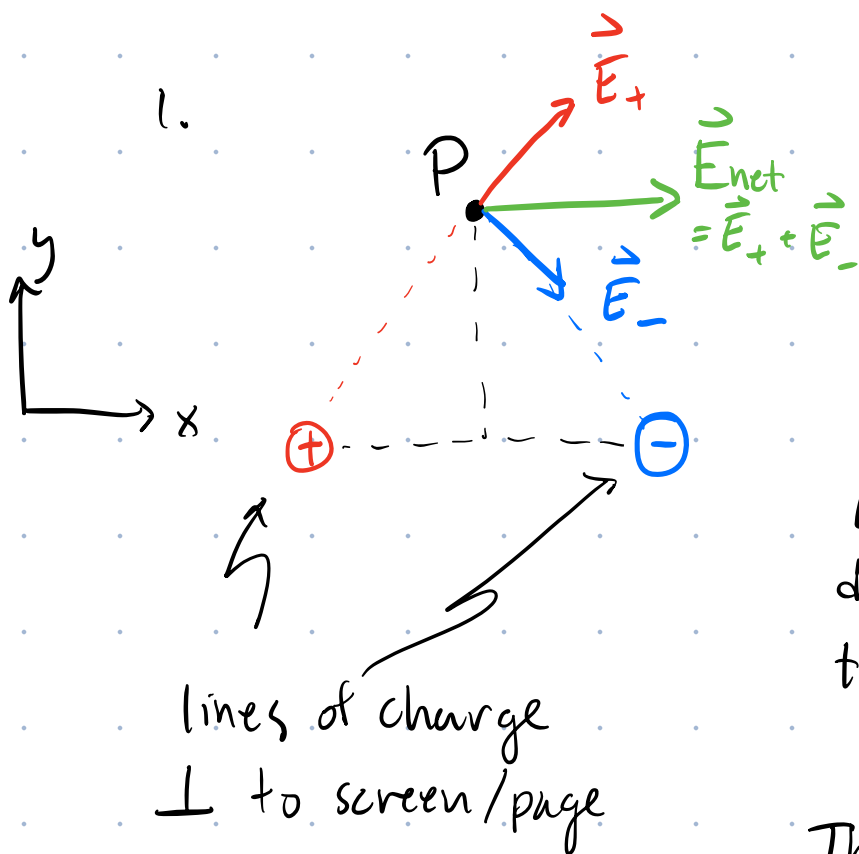 1.
E⃗₊
P
E⃗net
= E⃗₊ + E⃗₋
y
E⃗₋
x
+
−
d
t
lines of charge
⊥ to screen/page
Th